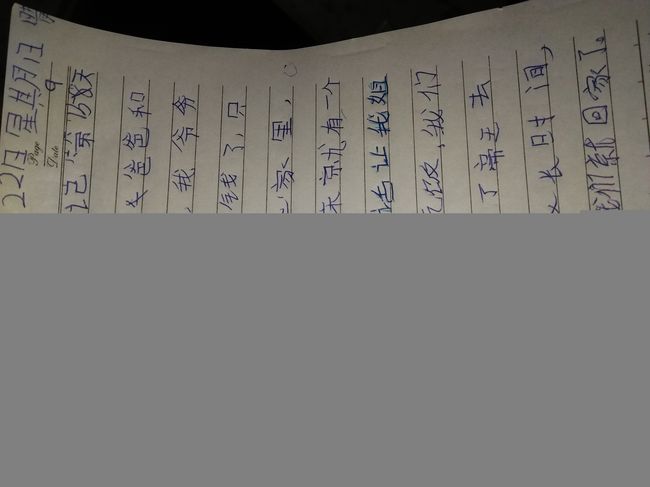 22日 星期日
Page
Date 9
记第158天
爸爸和
,我爷爷
钱了,只
家里,
就有一个
告让我姐
,我们
了 去
长时间,
我们就回家了。